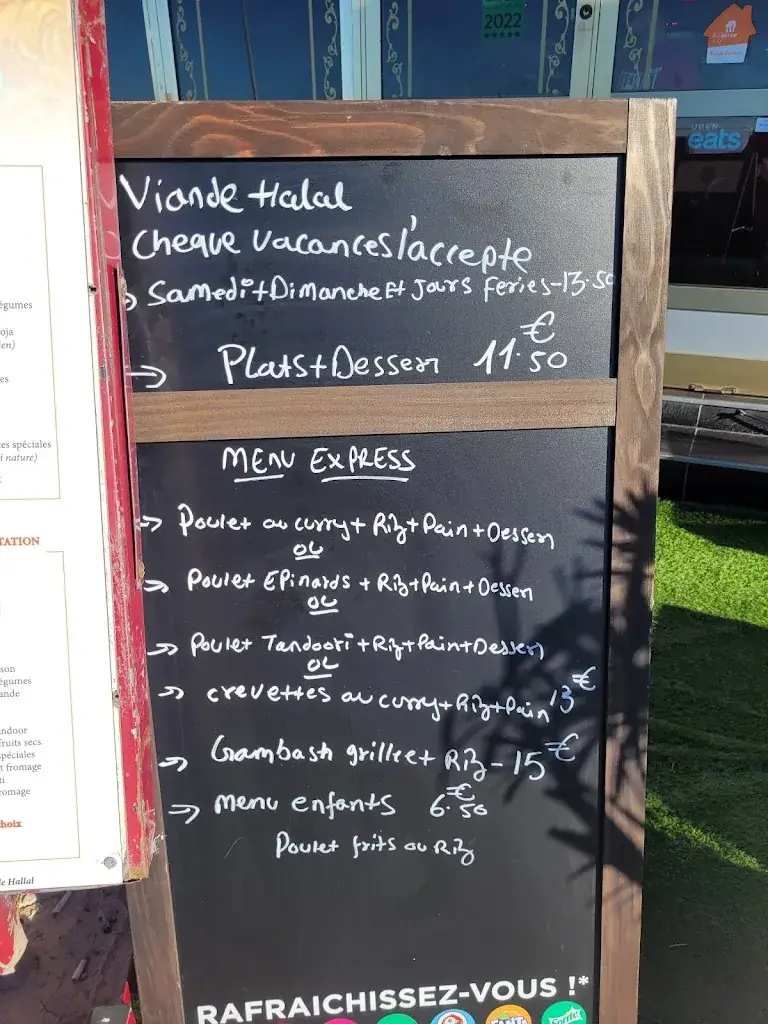 2022
UBER
eats
Viande Halal
Cheque Vacances l'accepte
→ Samedi+Dimanche Et Jours feries-13.50
→ Plats+Dessert 11.50 €
MENU EXPRESS
→ Poulet au curry+Riz+Pain+Dessert
OU
→ Poulet EPinards+Riz+Pain+Dessert
OU
→ Poulet Tandoori+Riz+Pain+Dessert
OU
→ crevettes au curry+Riz+Pain 13€
→ Gambash grillee+ Riz-15€
→ menu enfants 6.50€
Poulet frits ou Riz
RAFRAICHISSEZ-VOUS !*
FANTA
Sprite
égumes
oja
es
es spéciales
i nature)
TATION
son
égumes
ande
andoor
fruits secs
spéciales
t fromage
ti
romage
hoix
le Hallal